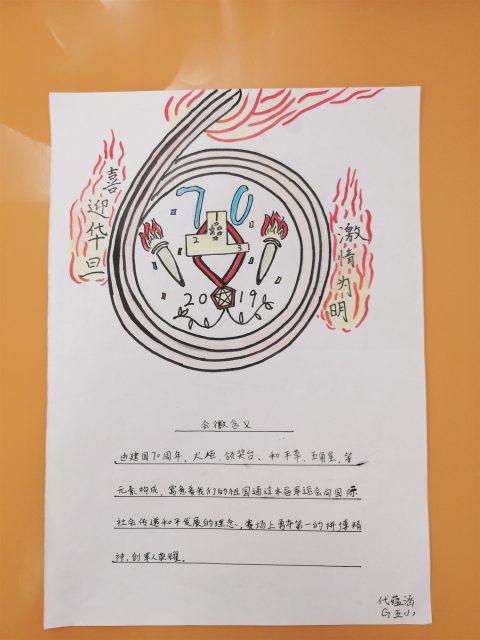 喜迎华旦
激情为明
70
2 3
2019
会徽含义
由建国70周年、火炬、领奖台、和平章、五角星、等
元素构成,寓意着我们的祖国通过本届军运会向国际
社会传递和平发展的理念、赛场上勇夺第一的拼博精
神,创军人荣耀。
代蕴涵